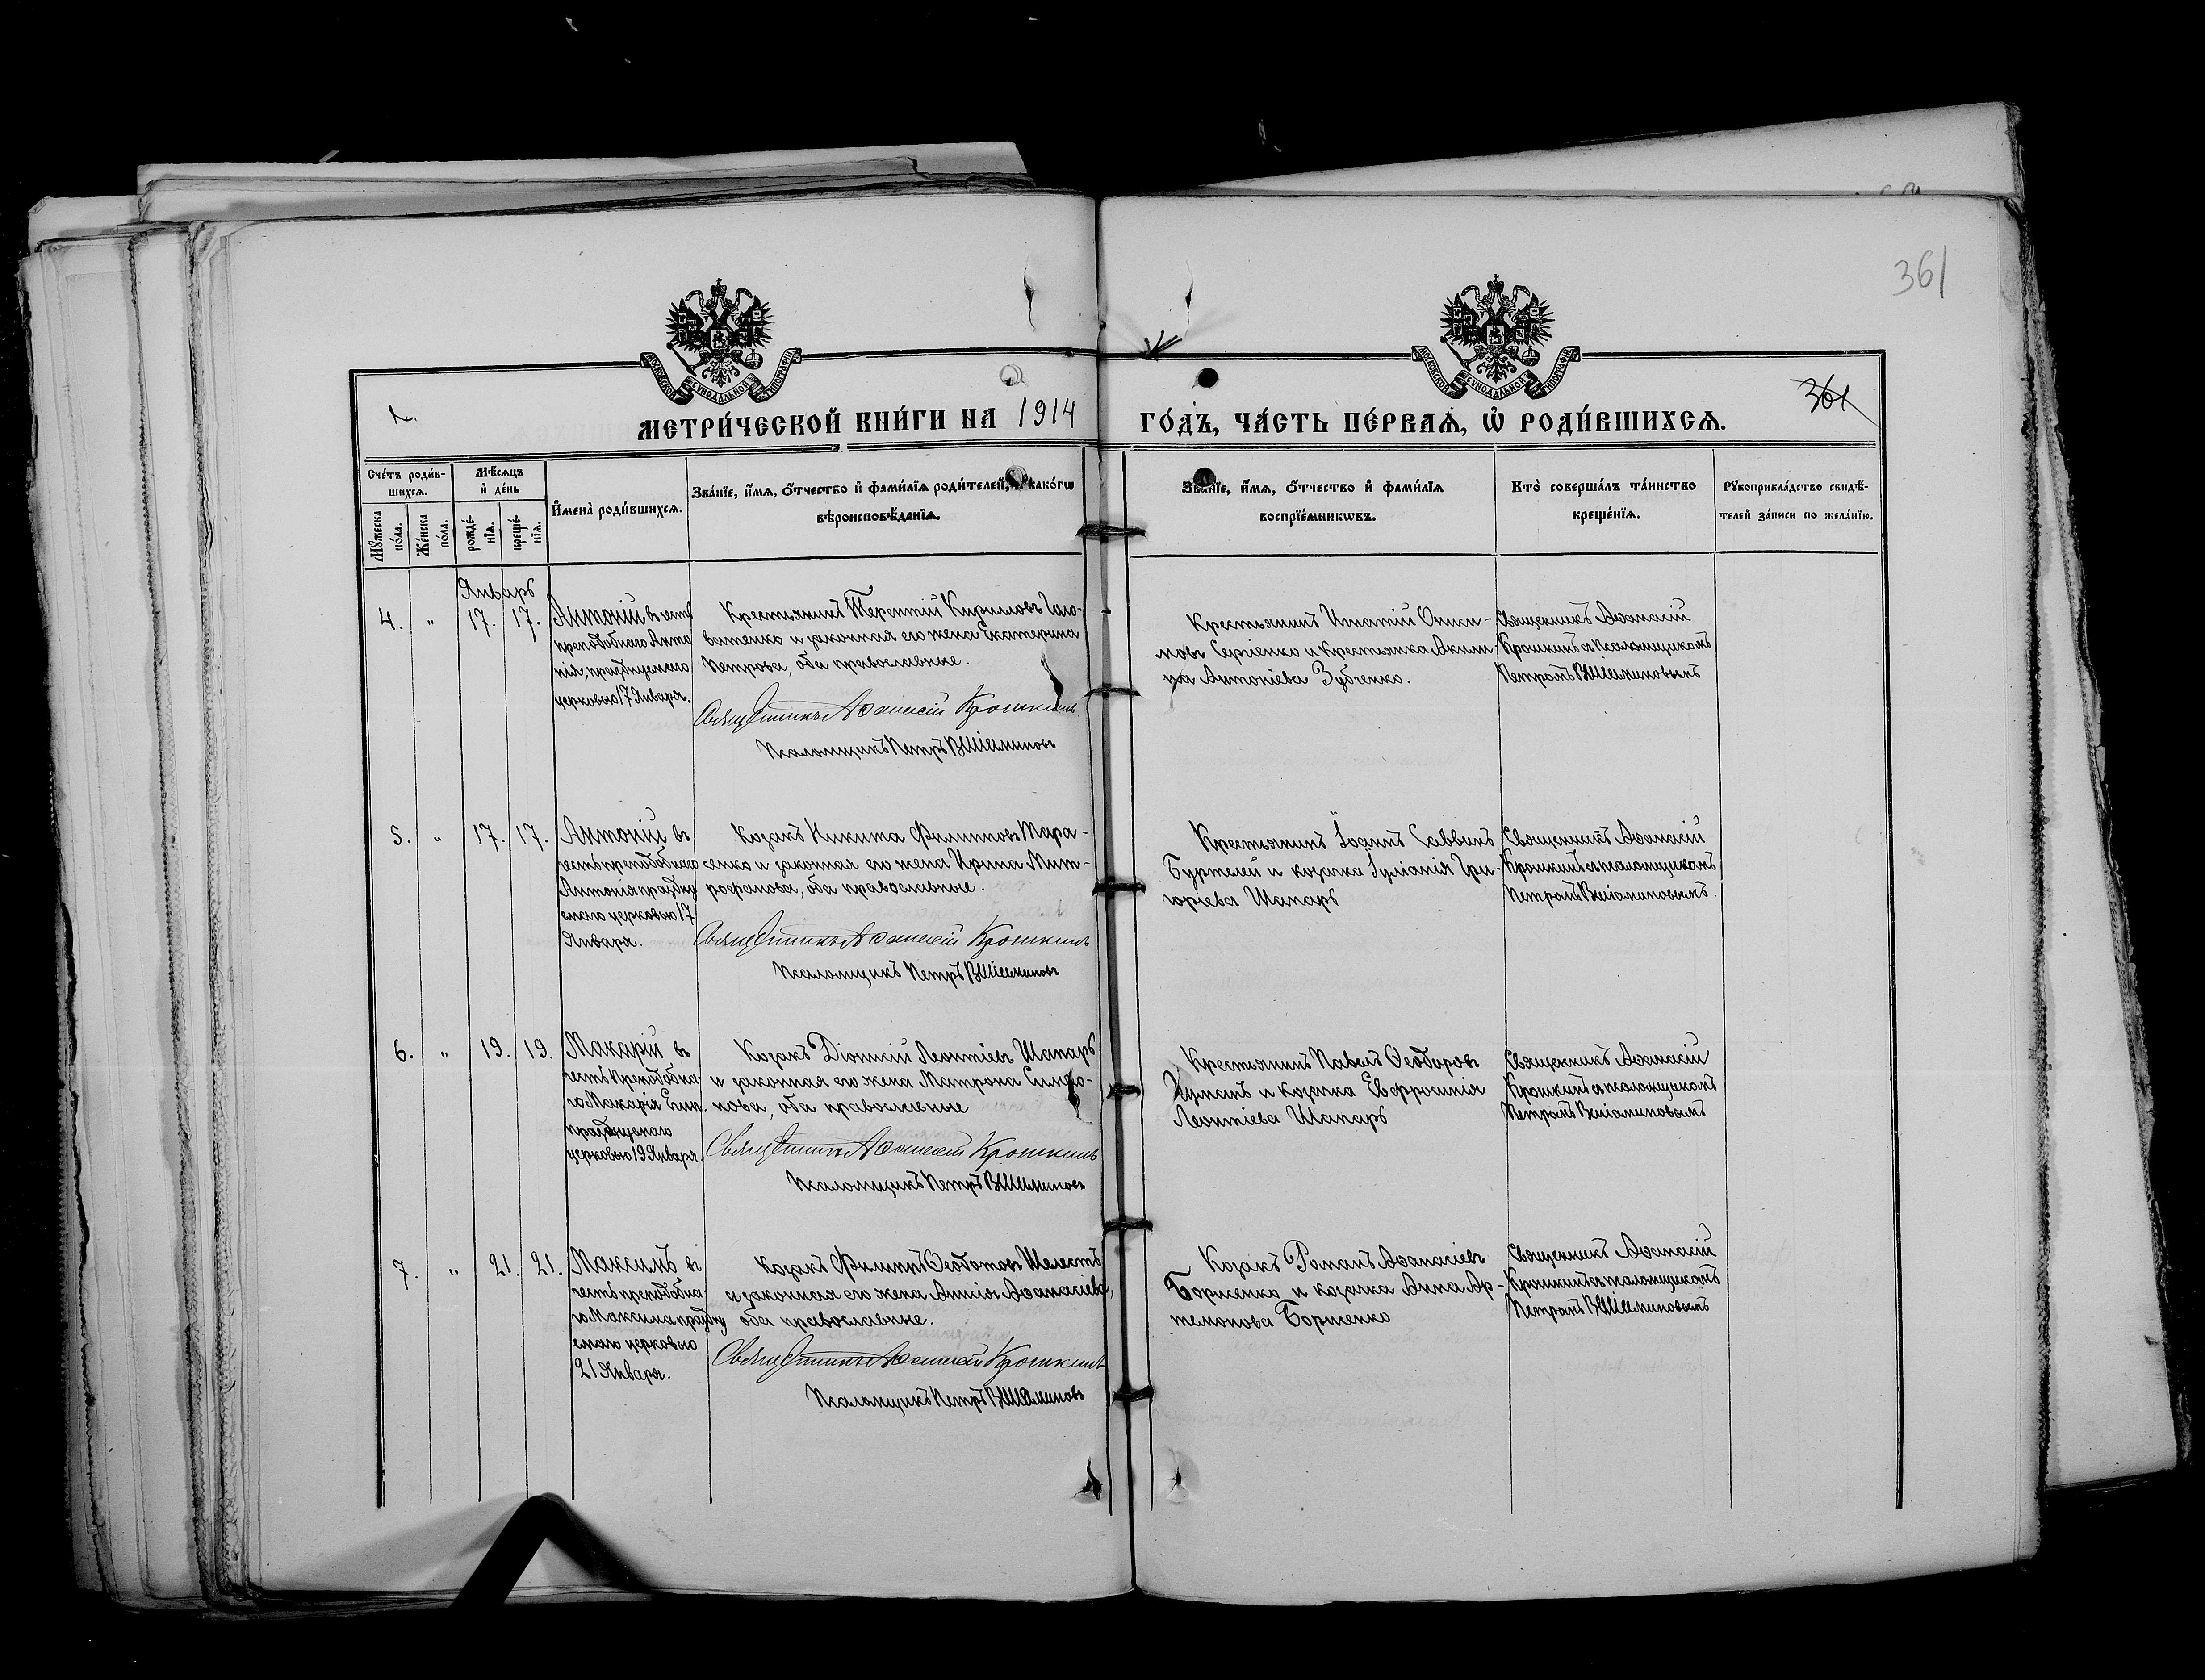 361
МОСКОВСКОЙ СУНОДАЛЬНОЙ ТИПОГРАФІИ
МОСКОВСКОЙ СУНОДАЛЬНОЙ ТИПОГРАФІИ
361
МЕТРИ́ЧЕСКОЙ КНИ́ГИ НА 1914 ГО́ДЪ, ЧА́СТЬ ПЕ́РВАѦ, Ѡ҆ РОДИ́ВШИХСѦ.
Сче́тъ роди́в-
шихсѧ.
Мѣ́сѧцъ
и҆ де́нь
Мꙋ́жеска
по́ла.
Же́нска
по́ла.
рожде́-
нїѧ.
креще́-
нїѧ.
И҆мена̀ роди́вшихсѧ.
Зва́нїе, и҆́мѧ, ѻ҆́тчество и҆ фами́лїѧ роди́телей, и҆ како́гѡ
вѣроисповѣ́данїѧ.
Зва́нїе, и҆́мѧ, ѻ҆́тчество и҆ фами́лїѧ
воспрїе́мникѡвъ.
Кто̀ соверша́лъ та́инство
креще́нїѧ.
Рꙋкоприкла́дство свидѣ́-
телей за́писи по жела́нїю.
Январь
4. " 17. 17.
Антоній въ честь
преподобнаго Анто
нія, празднуемаго
церковью 17 Января.
Крестьянинъ Терентій Кириловъ Голо-
ватенко и законная его жена Екатерина
Петрова, оба православные.
Священникъ Аѳанасій Крошкинъ
Псаломщикъ Петръ Веніаминовъ
Крестьянинъ Игнатій Онисі-
мовъ Сергіенко и крестьянка Акили-
на Антоніева Зубченко.
Священникъ Аѳанасій
Крошкинъ съ псаломщикомъ
Петромъ Веніаминовымъ
5. " 17. 17.
Антоній въ
честь преподобнаго
Антонія праздну
емаго церковью 17
Января.
Козакъ Никита Филипповъ Тара-
сенко и законная его жена Ирина Мит-
рофанова, оба православные.
Священникъ Аѳанасій Крошкинъ
Псаломщикъ Петръ Веніаминовъ
Крестьянинъ Іоаннъ Саввинъ
Буртелей и козачка Іуліанія Гри-
горіева Шапарь
Священникъ Аѳанасій
Крошкинъ съ псаломщикомъ
Петромъ Веніаминовымъ.
6. " 19. 19.
Макарій въ
честь Преподобна-
го Макарія Егип.
празднуемаго
церковью 19 Января.
Козакъ Діонисій Леонтіевъ Шапарь
и законная его жена Матрона Симео-
нова, оба православные
Священникъ Аѳанасій Крошкинъ
Псаломщикъ Петръ Веніаминовъ
Крестьянинъ Павелъ Ѳеодоровъ
Чуманъ и козачка Евфросинія
Леонтіева Шапарь
Священникъ Аѳанасій
Крошкинъ съ псаломщикомъ
Петромъ Веніаминовымъ
7. " 21. 21.
Максимъ въ
честь преподобна-
го Максима праздну
емаго церковью
21 Января.
Козакъ Филиппъ Ѳеодотовъ Шелестъ
и законная его жена Анисія Аѳанасіева,
оба православные.
Священникъ Аѳанасій Крошкинъ
Псаломщикъ Петръ Веніаминовъ
Козакъ Романъ Аѳанасіевъ
Борисенко и козачка Анна Ар-
темонова Борисенко
Священникъ Аѳанасій
Крошкинъ съ псаломщикомъ
Петромъ Веніаминовымъ